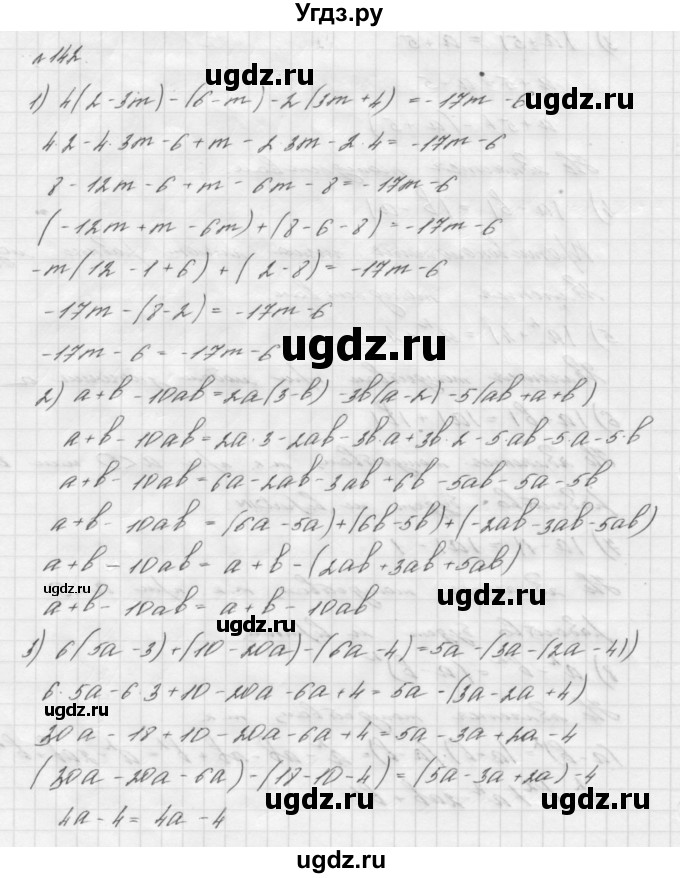 Угдз.ру
№142
1) 4(2-3m)-(6-m)-2(3m+4) = -17m-6
4·2-4·3m-6+m-2·3m-2·4 = -17m-6
8-12m-6+m-6m-8 = -17m-6
(-12m+m-6m)+(8-6-8) = -17m-6
-m(12-1+6)+(2-8) = -17m-6
-17m-(8-2) = -17m-6
-17m-6 = -17m-6
2) a+b-10ab = 2a(3-b)-3b(a-2)-5(ab+a+b)
a+b-10ab = 2a·3-2ab-3b·a+3b·2-5·ab-5·a-5·b
a+b-10ab = 6a-2ab-3ab+6b-5ab-5a-5b
a+b-10ab = (6a-5a)+(6b-5b)+(-2ab-3ab-5ab)
a+b-10ab = a+b-(2ab+3ab+5ab)
a+b-10ab = a+b-10ab
3) 6(5a-3)+(10-20a)-(6a-4) = 5a-(3a-(2a-4))
6·5a-6·3+10-20a-6a+4 = 5a-(3a-2a+4)
30a-18+10-20a-6a+4 = 5a-3a+2a-4
(30a-20a-6a)-(18-10-4) = (5a-3a+2a)-4
4a-4 = 4a-4
ugdz.ru
ugdz.ru
ugdz.ru
ugdz.ru
ugdz.ru
ugdz.ru
ugdz.ru
ugdz.ru
ugdz.ru
ugdz.ru
ugdz.ru
ugdz.ru